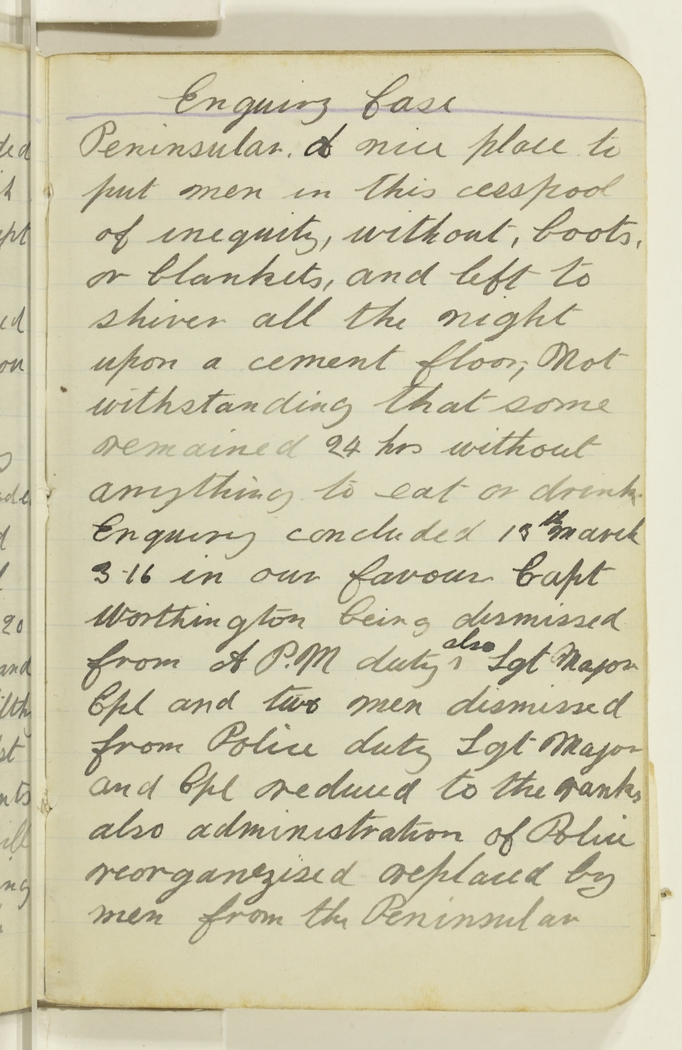 Enquiry Case
Peninsular. A nice place to
put men in this cesspool
of inequity, without, boots,
or blankets, and left to
shiver all the night
upon a cement floor, Not
withstanding that some
remained 24 hrs without
anything to eat or drink.
Enquiry concluded 13th March
3-16 in our favour Capt
Worthington being dismissed
from A P.M duty, also Sgt Major
Cpl and two men dismissed
from Police duty Sgt Major
and Cpl reduced to the ranks
also administration of Police
reorganizised replaced by
men from the Peninsular